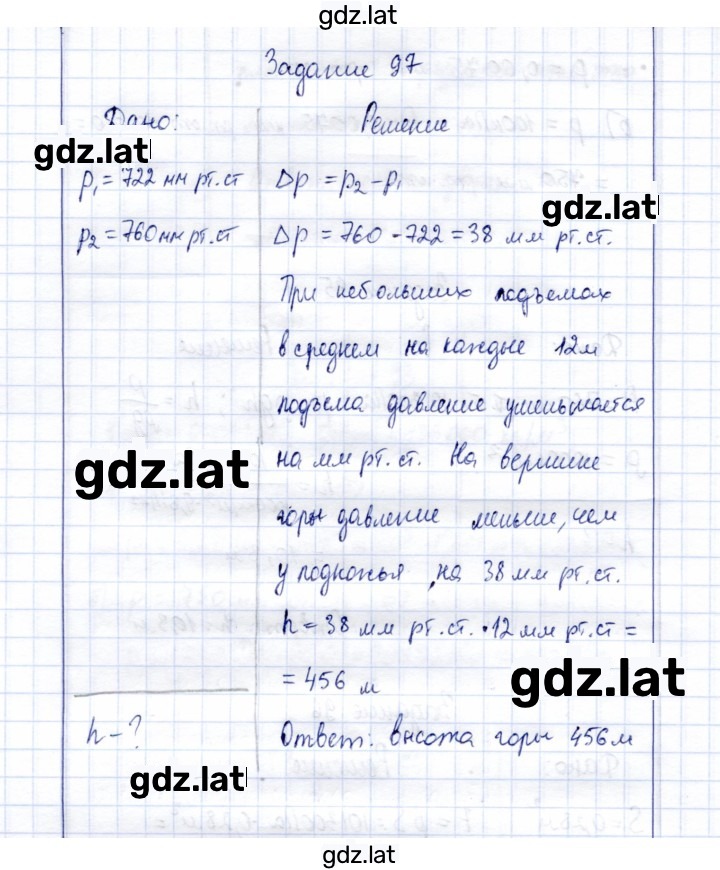 gdz.lat
Задание 97
Дано:
Решение
gdz.lat
p₁ = 722 мм рт.ст
Δp = p₂ - p₁
gdz.lat
p₂ = 760 мм рт.ст
Δp = 760 - 722 = 38 мм рт.ст.
При небольших подъемах
в среднем на каждые 12м
подъема давление уменьшается
на мм рт.ст. На вершине
gdz.lat
горы давление меньше, чем
у подножья, на 38 мм рт.ст.
h = 38 мм рт.ст. · 12 мм рт.ст =
= 456 м
gdz.lat
h - ?
Ответ: высота горы 456м
gdz.lat
gdz.lat